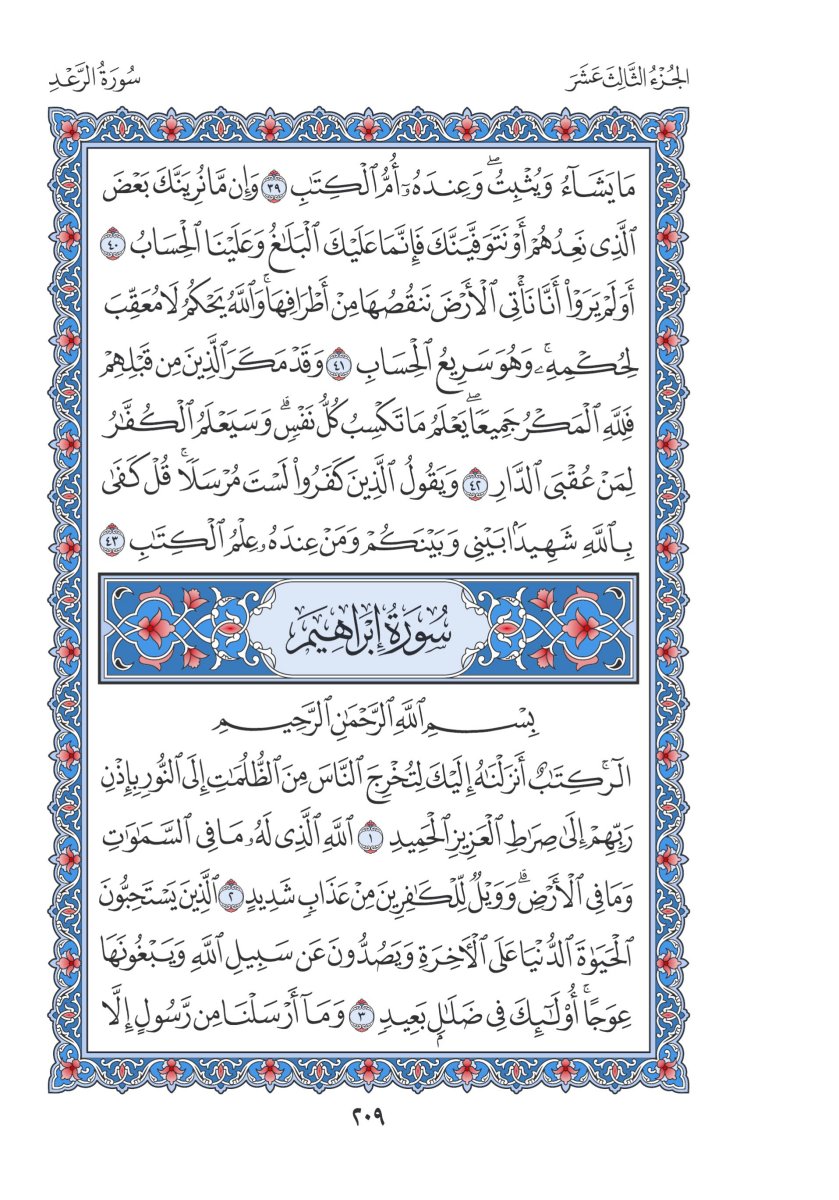 الجُزْءُ الثَّالِثَ عَشَرَ
سُورَةُ الرَّعْدِ
مَا يَشَآءُ وَيُثْبِتُۖ وَعِندَهُۥٓ أُمُّ ٱلْكِتَٰبِ ٣٩ وَإِن مَّا نُرِيَنَّكَ بَعْضَ
ٱلَّذِى نَعِدُهُمْ أَوْ نَتَوَفَّيَنَّكَ فَإِنَّمَا عَلَيْكَ ٱلْبَلَٰغُ وَعَلَيْنَا ٱلْحِسَابُ ٤٠
أَوَلَمْ يَرَوْا۟ أَنَّا نَأْتِى ٱلْأَرْضَ نَنقُصُهَا مِنْ أَطْرَافِهَاۚ وَٱللَّهُ يَحْكُمُ لَا مُعَقِّبَ
لِحُكْمِهِۦۚ وَهُوَ سَرِيعُ ٱلْحِسَابِ ٤١ وَقَدْ مَكَرَ ٱلَّذِينَ مِن قَبْلِهِمْ
فَلِلَّهِ ٱلْمَكْرُ جَمِيعًاۖ يَعْلَمُ مَا تَكْسِبُ كُلُّ نَفْسٍۗ وَسَيَعْلَمُ ٱلْكُفَّٰرُ
لِمَنْ عُقْبَى ٱلدَّارِ ٤٢ وَيَقُولُ ٱلَّذِينَ كَفَرُوا۟ لَسْتَ مُرْسَلًاۚ قُلْ كَفَىٰ
بِٱللَّهِ شَهِيدًۢا بَيْنِى وَبَيْنَكُمْ وَمَنْ عِندَهُۥ عِلْمُ ٱلْكِتَٰبِ ٤٣
سُورَةُ إِبْرَاهِيمَ
بِسْمِ ٱللَّهِ ٱلرَّحْمَٰنِ ٱلرَّحِيمِ
الٓرۚ كِتَٰبٌ أَنزَلْنَٰهُ إِلَيْكَ لِتُخْرِجَ ٱلنَّاسَ مِنَ ٱلظُّلُمَٰتِ إِلَى ٱلنُّورِ بِإِذْنِ
رَبِّهِمْ إِلَىٰ صِرَٰطِ ٱلْعَزِيزِ ٱلْحَمِيدِ ١ ٱللَّهِ ٱلَّذِى لَهُۥ مَا فِى ٱلسَّمَٰوَٰتِ
وَمَا فِى ٱلْأَرْضِۗ وَوَيْلٌ لِّلْكَٰفِرِينَ مِنْ عَذَابٍ شَدِيدٍ ٢ ٱلَّذِينَ يَسْتَحِبُّونَ
ٱلْحَيَوٰةَ ٱلدُّنْيَا عَلَى ٱلْءَاخِرَةِ وَيَصُدُّونَ عَن سَبِيلِ ٱللَّهِ وَيَبْغُونَهَا
عِوَجًاۚ أُو۟لَٰٓئِكَ فِى ضَلَٰلٍۭ بَعِيدٍ ٣ وَمَآ أَرْسَلْنَا مِن رَّسُولٍ إِلَّا
٢٠٩